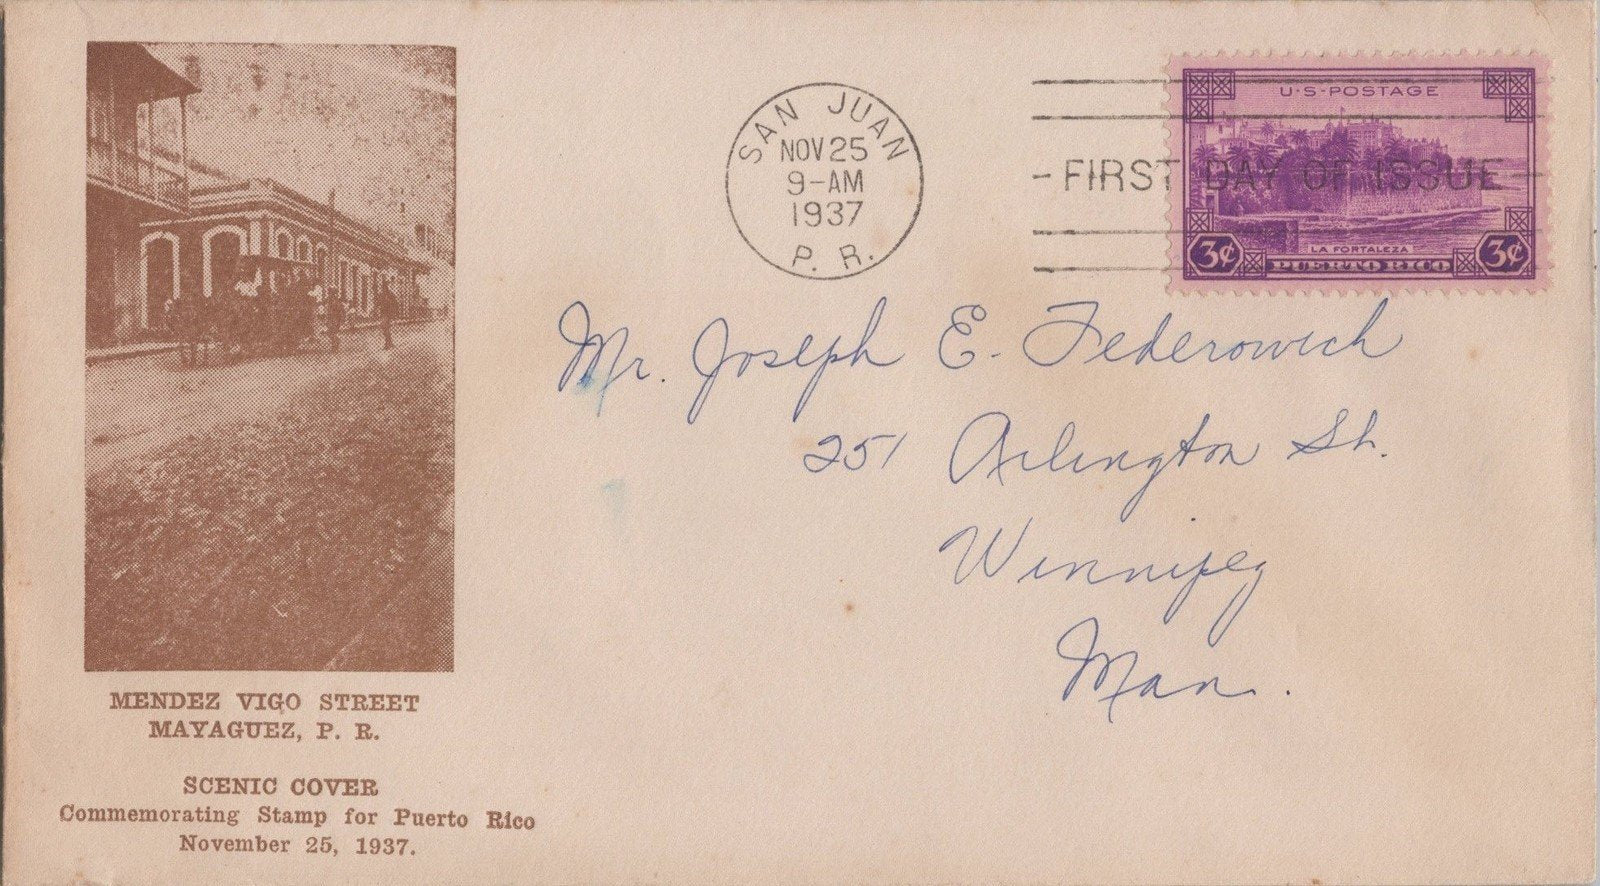 SAN JUAN
NOV 25
9-AM
1937
P. R.
FIRST DAY OF ISSUE
U·S·POSTAGE
LA FORTALEZA
3¢ PUERTO RICO 3¢
Mr. Joseph E. Federowich
251 Arlington St.
Winnipeg
Man.
MENDEZ VIGO STREET
MAYAGUEZ, P. R.
SCENIC COVER
Commemorating Stamp for Puerto Rico
November 25, 1937.